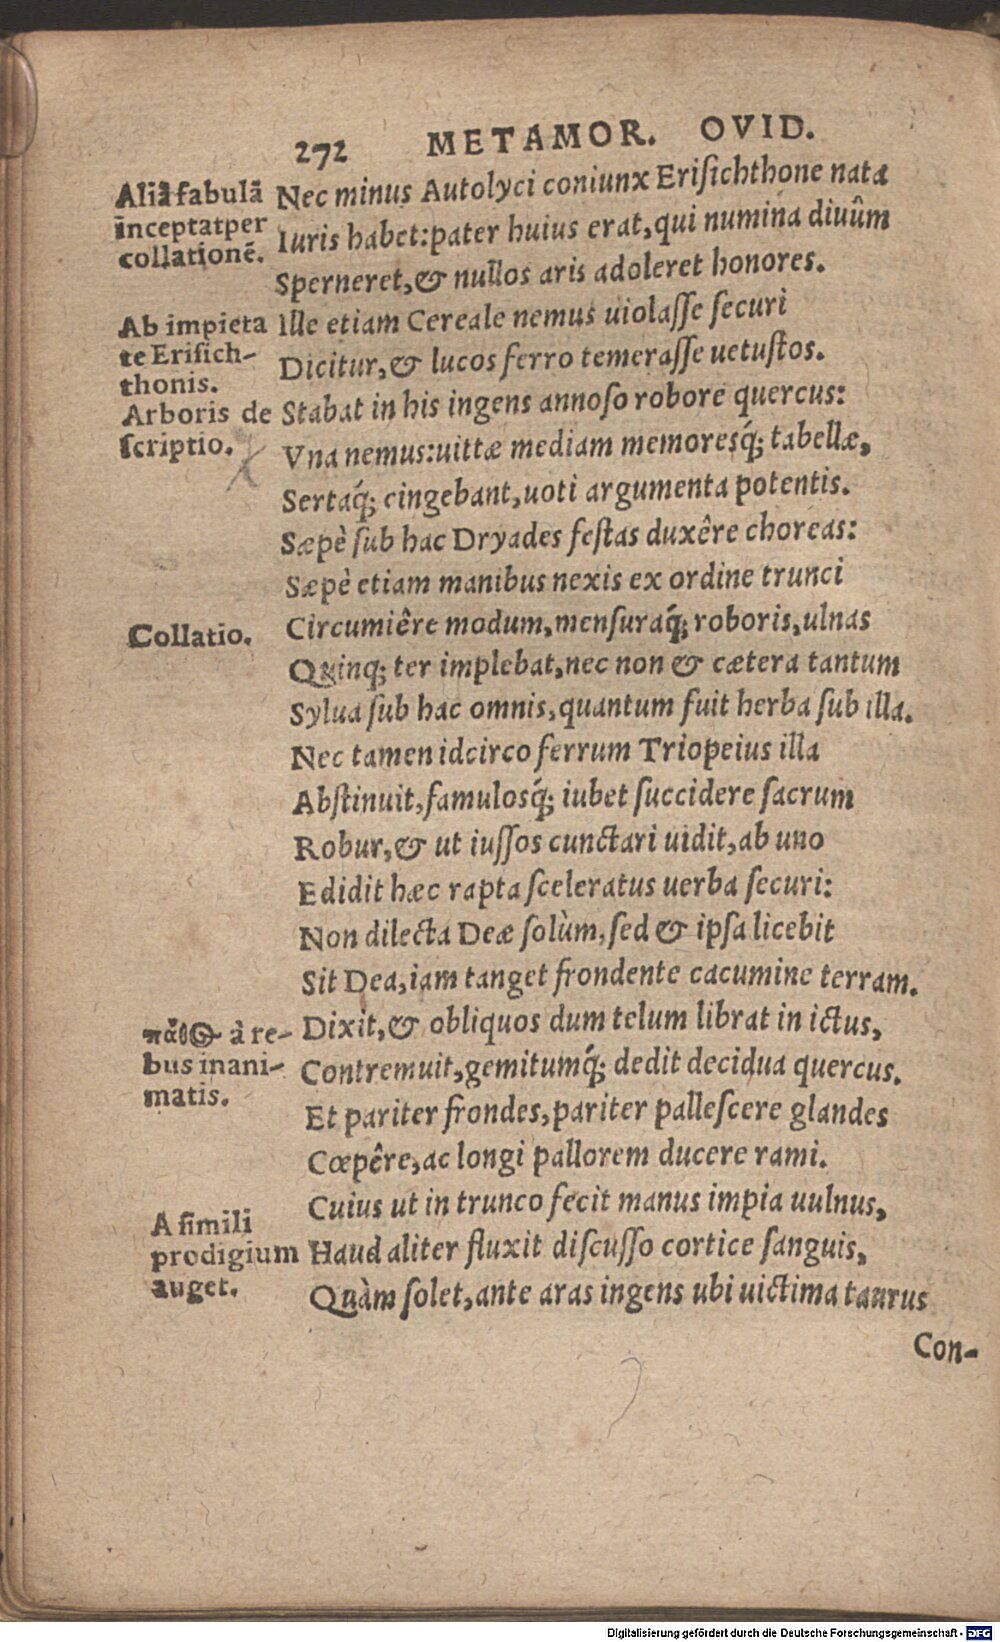 272 METAMOR. OVID.
Aliã fabulã
inceptat per
collationẽ.
Nec minus Autolyci coniunx Erisichthone nata
Iuris habet: pater huius erat, qui numina diuûm
Sperneret, & nullos aris adoleret honores.
Ab impieta
te Erisich-
thonis.
Ille etiam Cereale nemus uiolasse securi
Dicitur, & lucos ferro temerasse uetustos.
Arboris de
scriptio.
Stabat in his ingens annoso robore quercus:
Vna nemus: uittæ mediam memoresq́; tabellæ,
Sertaq́; cingebant, uoti argumenta potentis.
Sæpè sub hac Dryades festas duxêre choreas:
Sæpè etiam manibus nexis ex ordine trunci
Collatio.
Circumiêre modum, mensuraq́; roboris, ulnas
Quinq; ter implebat, nec non & cætera tantum
Sylua sub hac omnis, quantum fuit herba sub illa.
Nec tamen idcirco ferrum Triopeius illa
Abstinuit, famulosq́; iubet succidere sacrum
Robur, & ut iussos cunctari uidit, ab uno
Edidit hæc rapta sceleratus uerba securi:
Non dilecta Deæ solùm, sed & ipsa licebit
Sit Dea, iam tanget frondente cacumine terram.
πάθος à re-
bus inani-
matis.
Dixit, & obliquos dum telum librat in ictus,
Contremuit, gemitumq́; dedit decidua quercus.
Et pariter frondes, pariter pallescere glandes
Cœpêre, ac longi pallorem ducere rami.
Cuius ut in trunco fecit manus impia uulnus,
A simili
prodigium
auget.
Haud aliter fluxit discusso cortice sanguis,
Quàm solet, ante aras ingens ubi uictima taurus
Con-
Digitalisierung gefördert durch die Deutsche Forschungsgemeinschaft - DFG